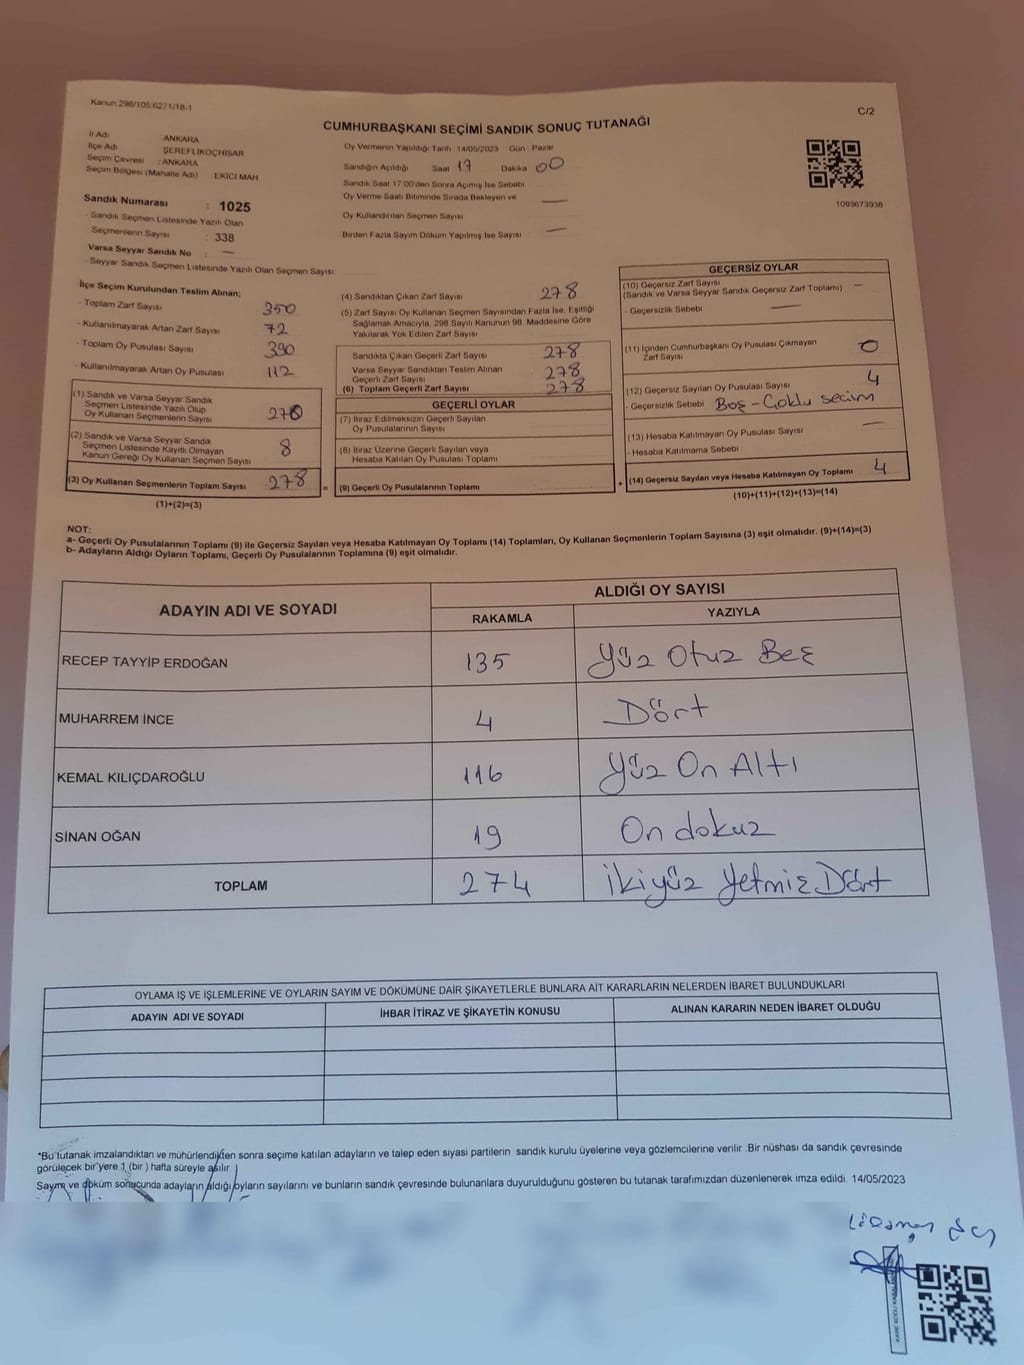 Kanun 298/105.6271/18-1
C/2
CUMHURBAŞKANI SEÇİMİ SANDIK SONUÇ TUTANAĞI
İl Adı : ANKARA
İlçe Adı : ŞEREFLİKOÇHİSAR
Seçim Çevresi : ANKARA
Seçim Bölgesi (Mahalle Adı) EKİCİ MAH
Sandık Numarası : 1025
- Sandık Seçmen Listesinde Yazılı Olan
Seçmenlerin Sayısı : 338
Varsa Seyyar Sandık No : —
- Seyyar Sandık Seçmen Listesinde Yazılı Olan Seçmen Sayısı
Oy Vermenin Yapıldığı Tarih 14/05/2023 Gün Pazar
Sandığın Açıldığı Saat 17 Dakika 00
Sandık Saat 17:00'den Sonra Açımış İse Sebebi
Oy Verme Saati Bitiminde Sırada Bekleyen ve —
Oy Kullandırılan Seçmen Sayısı
Birden Fazla Sayım Döküm Yapılmış İse Sayısı —
1093673938
İlçe Seçim Kurulundan Teslim Alınan;
- Toplam Zarf Sayısı 350
- Kullanılmayarak Artan Zarf Sayısı 72
- Toplam Oy Pusulası Sayısı 390
- Kullanılmayarak Artan Oy Pusulası 112
(1) Sandık ve Varsa Seyyar Sandık
Seçmen Listesinde Yazılı Olup
Oy Kullanan Seçmenlerin Sayısı 270
(2) Sandık ve Varsa Seyyar Sandık
Seçmen Listesinde Kayıtlı Olmayan
Kanun Gereği Oy Kullanan Seçmen Sayısı 8
(3) Oy Kullanan Seçmenlerin Toplam Sayısı 278
(1)+(2)=(3)
(4) Sandıktan Çıkan Zarf Sayısı 278
(5) Zarf Sayısı Oy Kullanan Seçmen Sayısından Fazla İse, Eşitliği
Sağlamak Amacıyla, 298 Sayılı Kanunun 98. Maddesine Göre
Yakılarak Yok Edilen Zarf Sayısı
Sandıkta Çıkan Geçerli Zarf Sayısı 278
Varsa Seyyar Sandıktan Teslim Alınan
Geçerli Zarf Sayısı 278
(6) Toplam Geçerli Zarf Sayısı 278
GEÇERLİ OYLAR
(7) İtiraz Edilmeksizin Geçerli Sayılan
Oy Pusulalarının Sayısı
(8) İtiraz Üzerine Geçerli Sayılan veya
Hesaba Katılan Oy Pusulaları Toplamı
= (9) Geçerli Oy Pusulalarının Toplamı
GEÇERSİZ OYLAR
(10) Geçersiz Zarf Sayısı —
(Sandık ve Varsa Seyyar Sandık Geçersiz Zarf Toplamı)
- Geçersizlik Sebebi —
(11) İçinden Cumhurbaşkanı Oy Pusulası Çıkmayan
Zarf Sayısı 0
(12) Geçersiz Sayılan Oy Pusulası Sayısı 4
- Geçersizlik Sebebi Boş-Çoklu secim
(13) Hesaba Katılmayan Oy Pusulası Sayısı —
- Hesaba Katılmama Sebebi
+ (14) Geçersiz Sayılan veya Hesaba Katılmayan Oy Toplamı 4
(10)+(11)+(12)+(13)=(14)
NOT:
a- Geçerli Oy Pusulalarının Toplamı (9) ile Geçersiz Sayılan veya Hesaba Katılmayan Oy Toplamı (14) Toplamları, Oy Kullanan Seçmenlerin Toplam Sayısına (3) eşit olmalıdır. (9)+(14)=(3)
b- Adayların Aldığı Oyların Toplamı, Geçerli Oy Pusulalarının Toplamına (9) eşit olmalıdır.
ADAYIN ADI VE SOYADI
ALDIĞI OY SAYISI
RAKAMLA YAZIYLA
RECEP TAYYİP ERDOĞAN 135 Yüz Otuz Beş
MUHARREM İNCE 4 Dört
KEMAL KILIÇDAROĞLU 116 Yüz On Altı
SİNAN OĞAN 19 On dokuz
TOPLAM 274 İkiyüz Yetmiş Dört
OYLAMA İŞ VE İŞLEMLERİNE VE OYLARIN SAYIM VE DÖKÜMÜNE DAİR ŞİKAYETLERLE BUNLARA AİT KARARLARIN NELERDEN İBARET BULUNDUKLARI
ADAYIN ADI VE SOYADI İHBAR İTİRAZ VE ŞİKAYETİN KONUSU ALINAN KARARIN NEDEN İBARET OLDUĞU
*Bu tutanak imzalandıktan ve mühürlendikten sonra seçime katılan adayların ve talep eden siyasi partilerin sandık kurulu üyelerine veya gözlemcilerine verilir. Bir nüshası da sandık çevresinde
görülecek bir yere 1 (bir) hafta süreyle asılır.
Sayım ve döküm sonucunda adayların aldığı oyların sayılarını ve bunların sandık çevresinde bulunanlara duyurulduğunu gösteren bu tutanak tarafımızdan düzenlenerek imza edildi. 14/05/2023